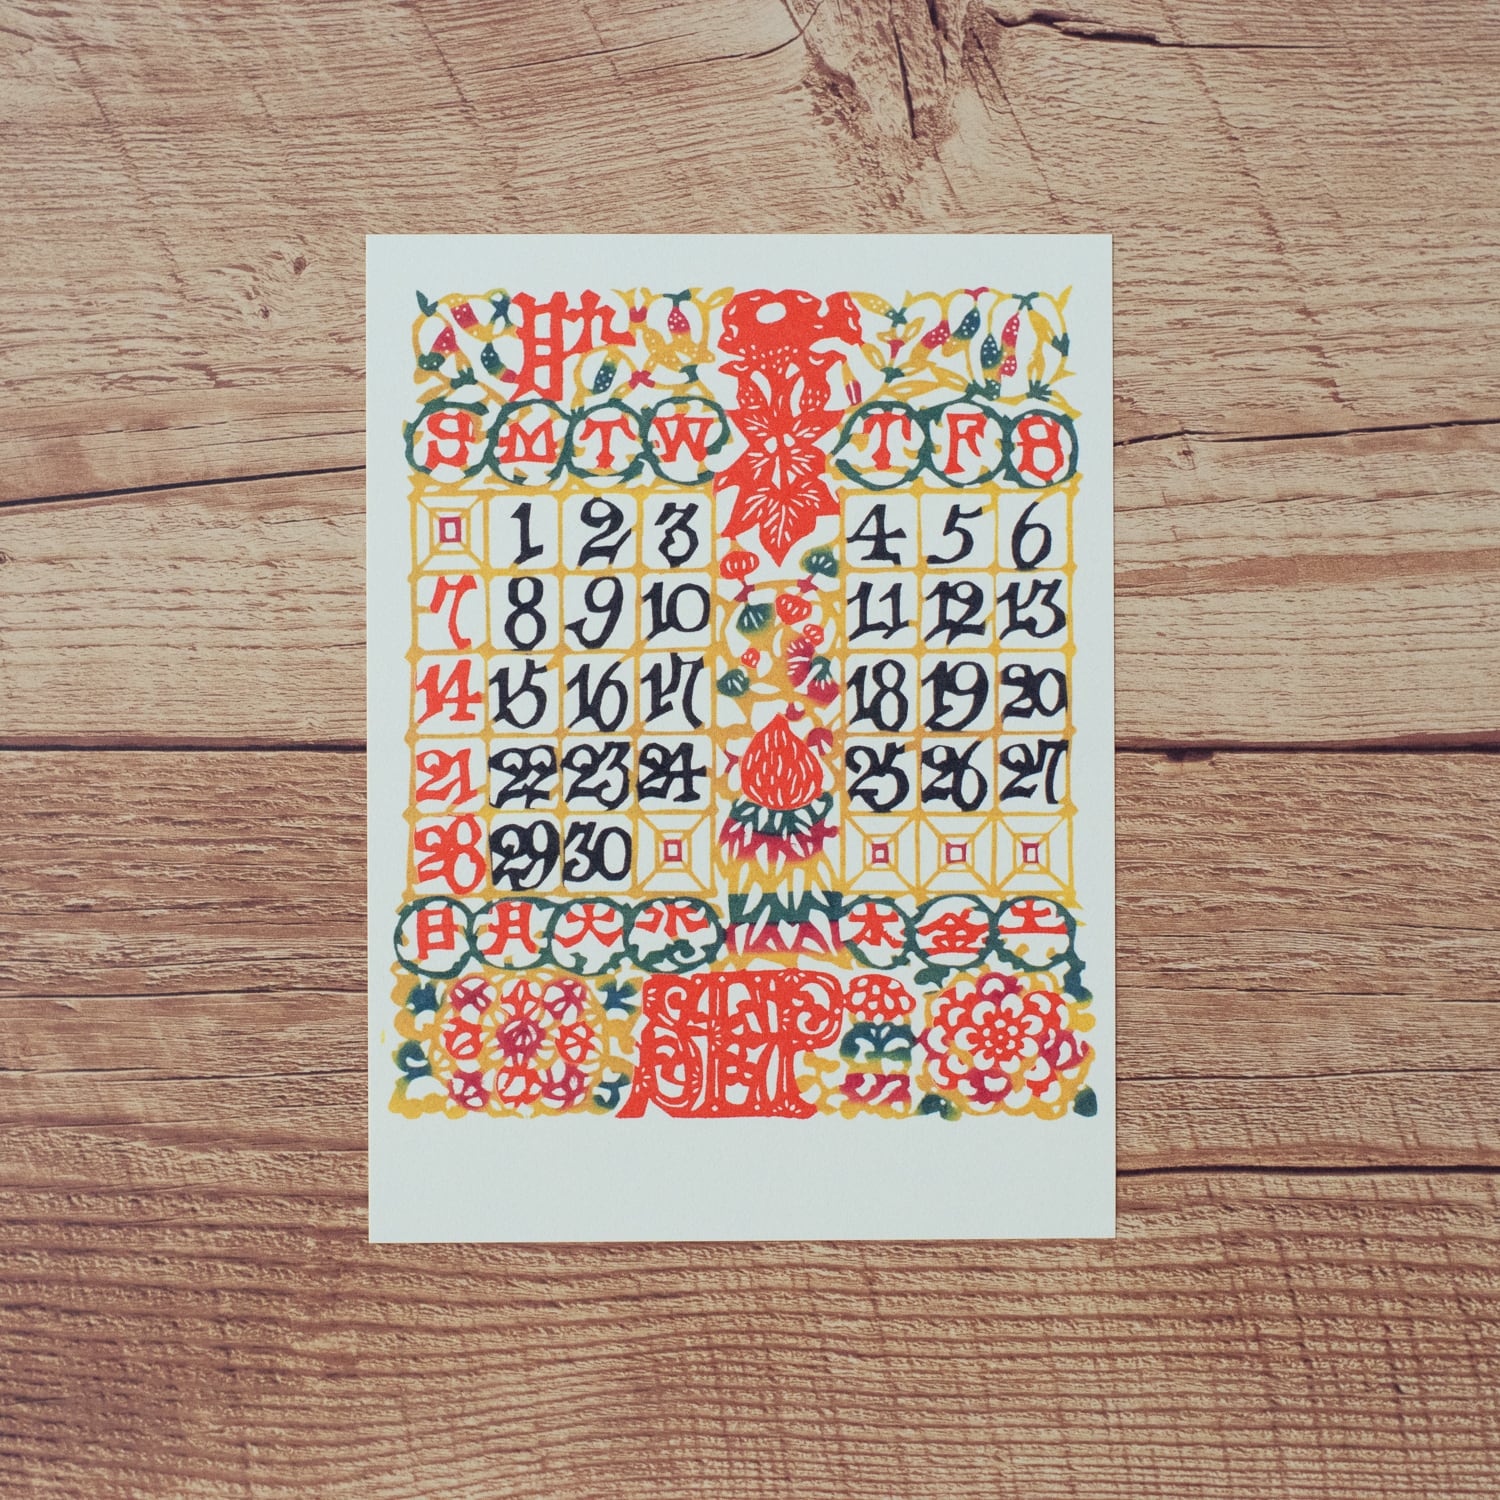 九月
S M T W T F S
1 2 3 4 5 6
7 8 9 10 11 12 13
14 15 16 17 18 19 20
21 22 23 24 25 26 27
28 29 30
日 月 火 水 木 金 土